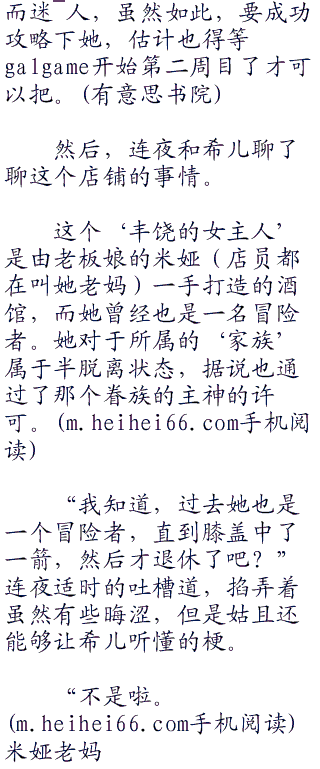 而迷 人，虽然如此，要成功
攻略下她，估计也得等
galgame开始第二周目了才可
以把。(有意思书院)
然后，连夜和希儿聊了
聊这个店铺的事情。
这个‘丰饶的女主人’
是由老板娘的米娅（店员都
在叫她老妈）一手打造的酒
馆，而她曾经也是一名冒险
者。她对于所属的‘家族’
属于半脱离状态，据说也通
过了那个眷族的主神的许
可。(m.heihei66.com手机阅
读)
“我知道，过去她也是
一个冒险者，直到膝盖中了
一箭，然后才退休了吧？”
连夜适时的吐槽道，掐弄着
虽然有些晦涩，但是姑且还
能够让希儿听懂的梗。
“不是啦。
(m.heihei66.com手机阅读)
米娅老妈